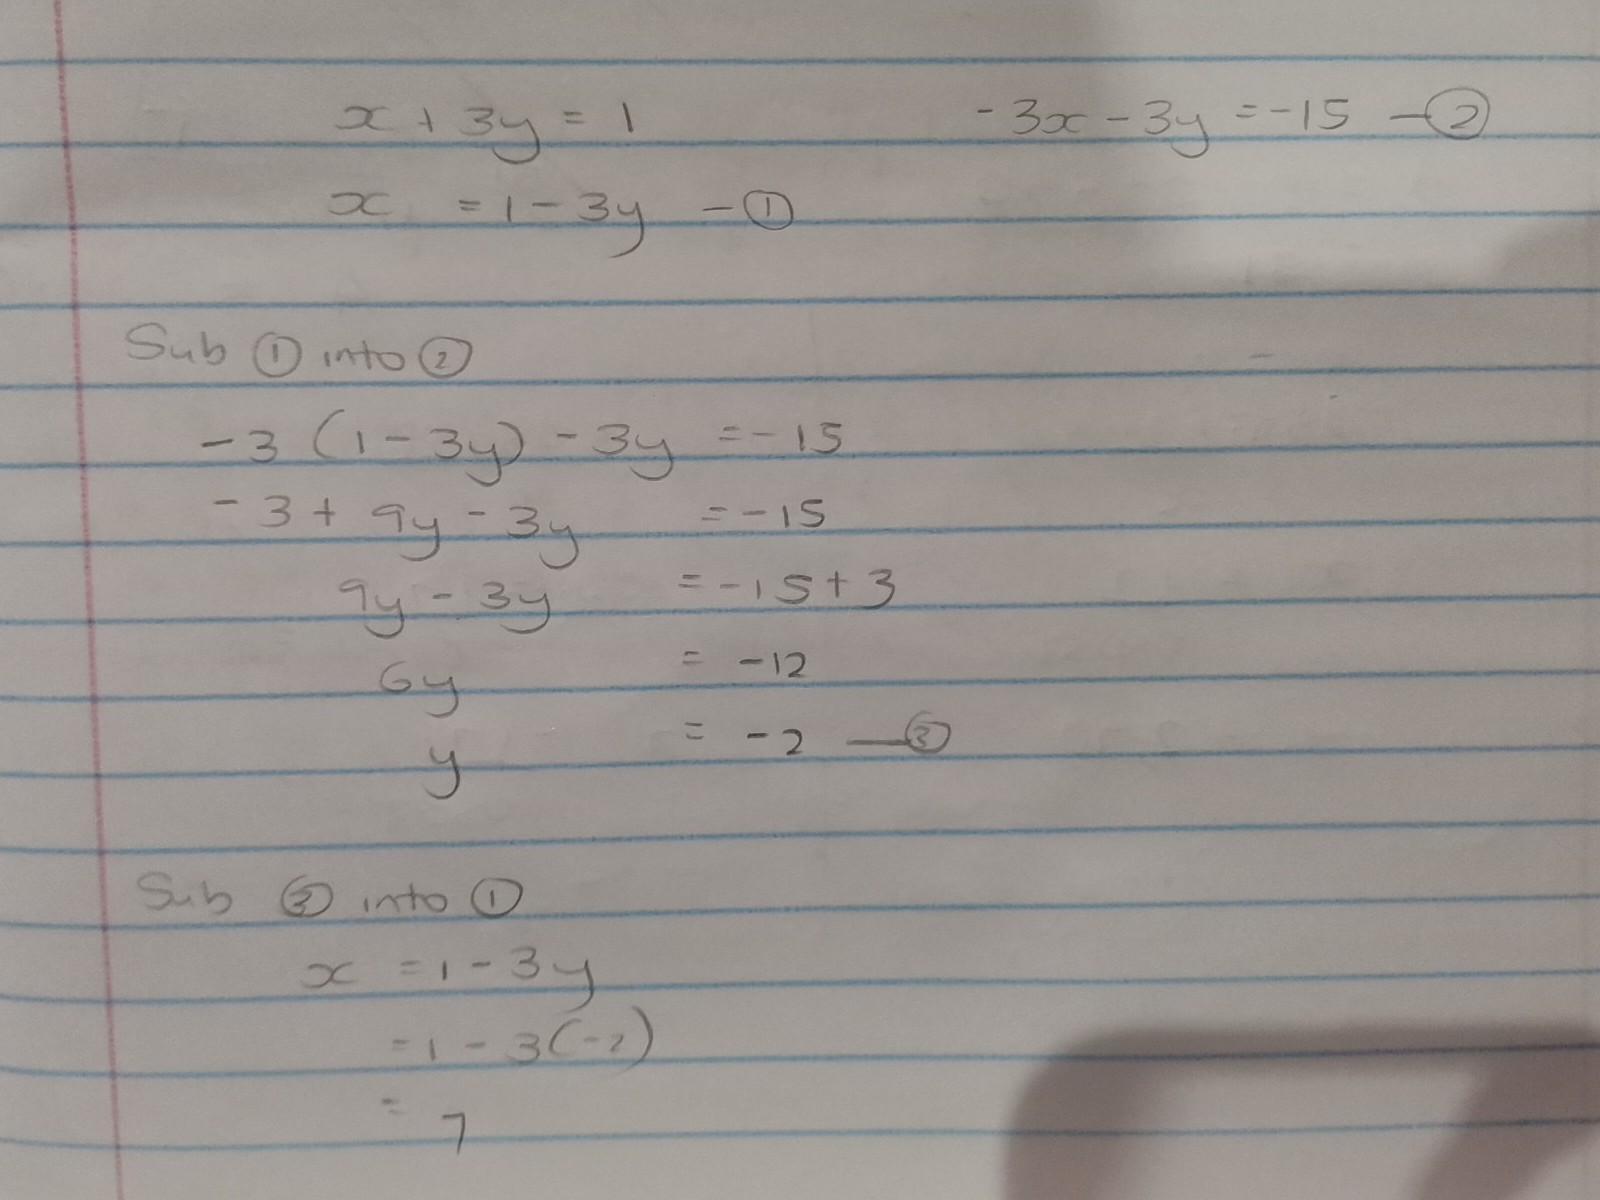 x + 3y = 1 -3x - 3y = -15 — ②
x = 1 - 3y - ①
Sub ① into ②
-3 (1 - 3y) - 3y = -15
-3 + 9y - 3y = -15
9y - 3y = -15 + 3
6y = -12
y = -2 — ③
Sub ③ into ①
x = 1 - 3y
= 1 - 3(-2)
= 7